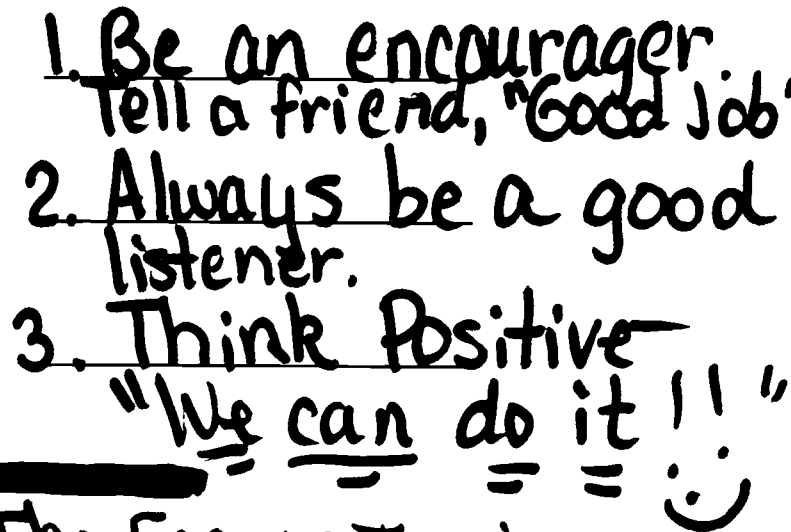 1. Be an encourager.
Tell a friend, "Good Job"
2. Always be a good
listener.
3. Think Positive-
"We can do it!!"